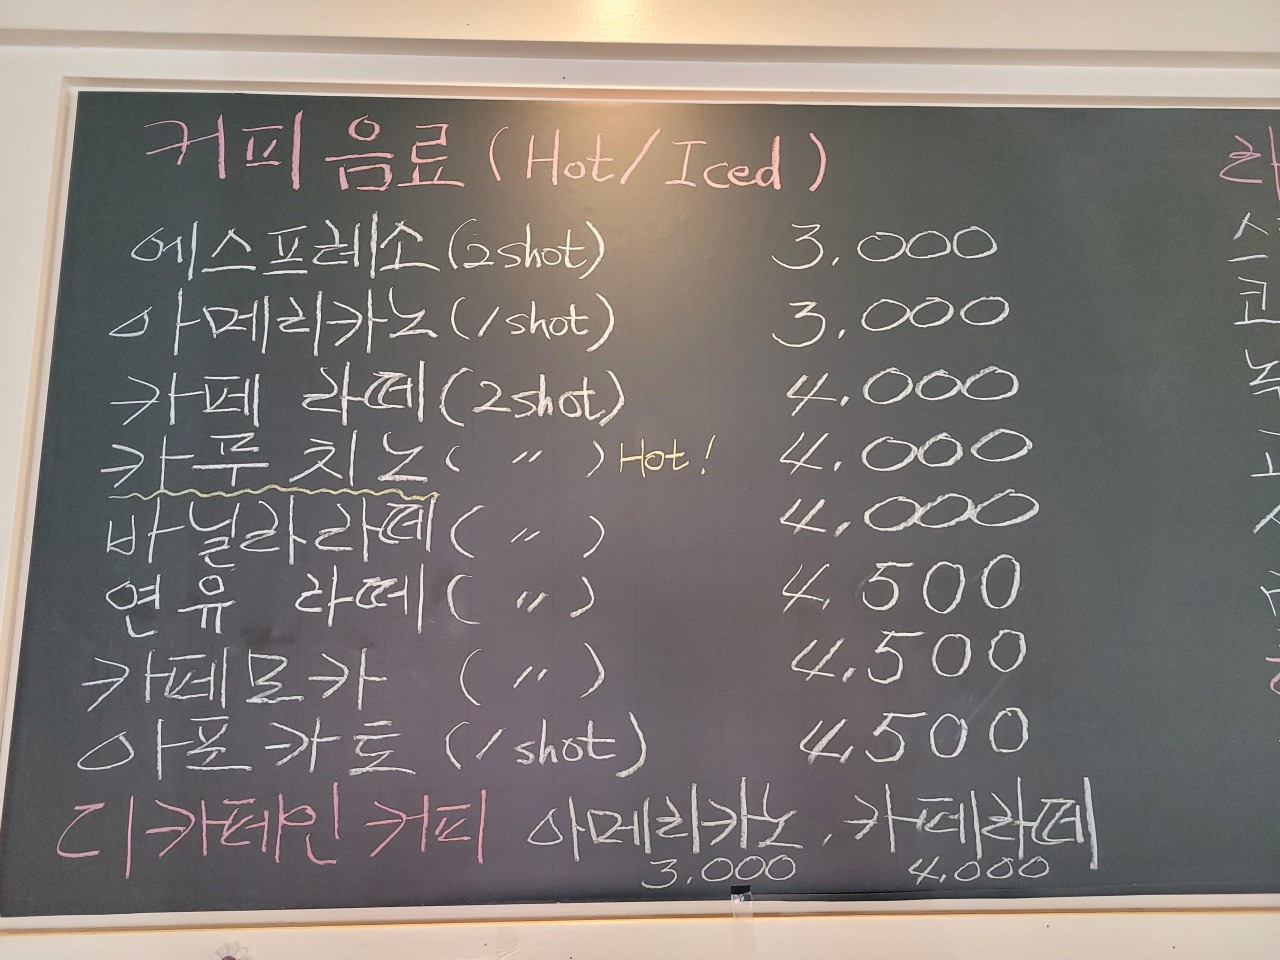 커피음료 (Hot/Iced)
에스프레소 (2shot) 3.000
아메리카노 (1shot) 3.000
카페 라떼 (2shot) 4.000
카푸치노 ( 〃 ) Hot! 4.000
바닐라라떼 ( 〃 ) 4.000
연유 라떼 ( 〃 ) 4.500
카페모카 ( 〃 ) 4.500
아포카토 (1shot) 4.500
디카페인 커피 아메리카노, 카페라떼
3.000 4.000